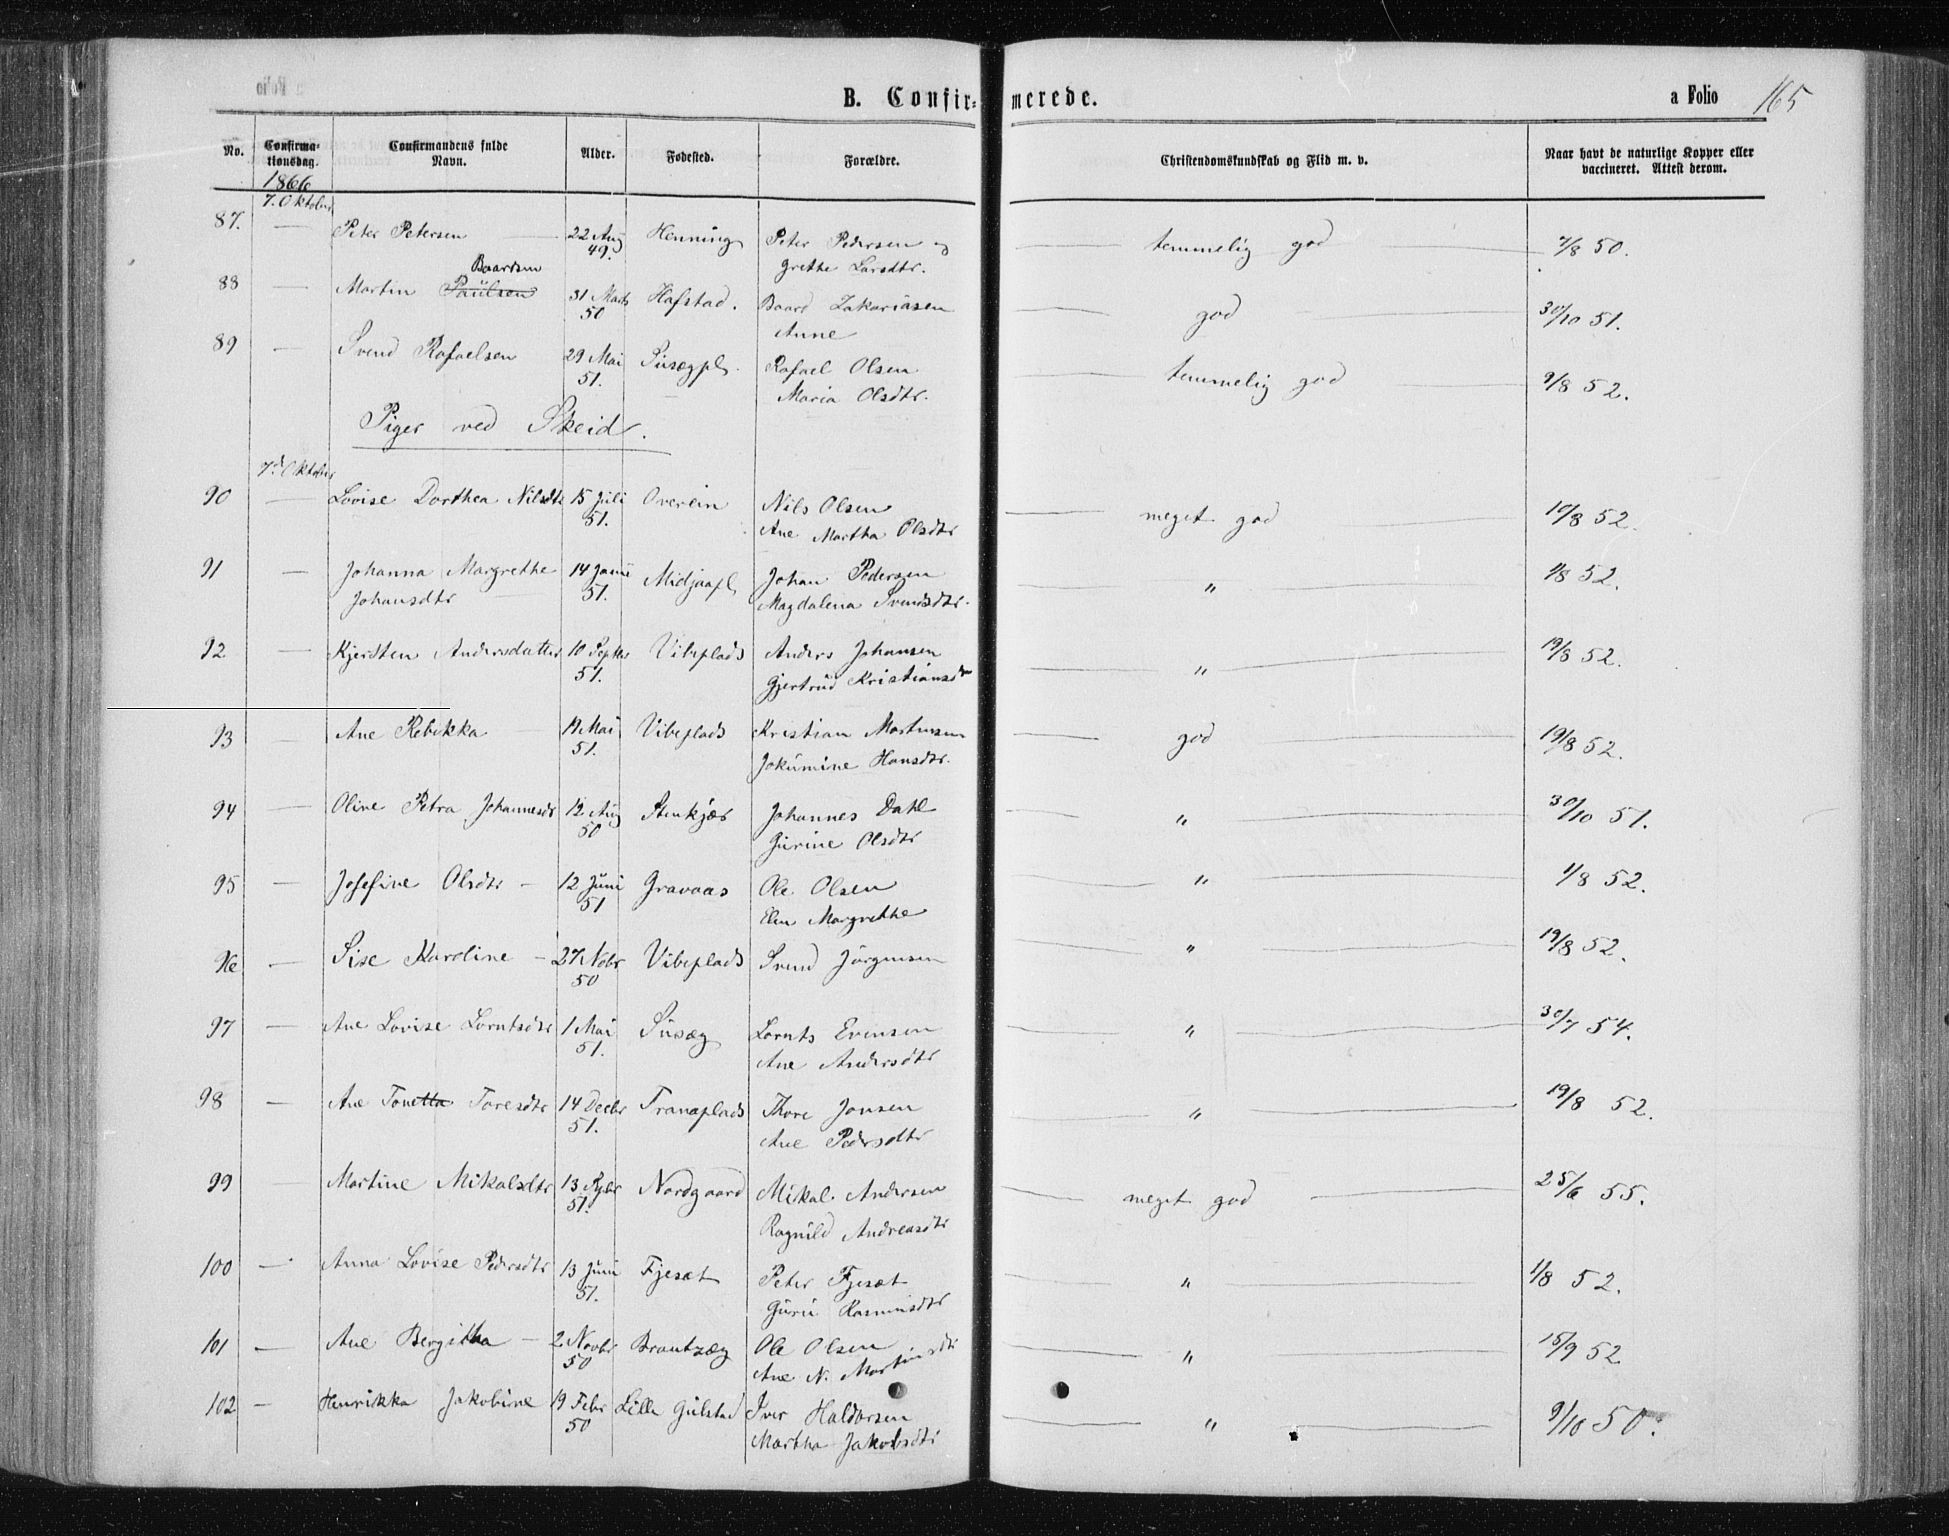 B. Confir-merede.
a Folio 165
No. Confirma-tionsdag. Confirmandens fulde Navn. Alder. Fødested. Forældre. Christendomskundskab og Flid m. v. Naar havt de naturlige Kopper eller vaccineret. Attest derom.
1866
7. Oktober
87. — Peter Petersen 22 Aug 49. Henning Peter Pedersen og temmelig god 7/8 50.
Grethe Larsdtr.
Baardsen
88 — Martin Paulsen 31 Marts 50 Hafstad. Baard Zakariasen god 30/10 51.
Anne
89 — Svend Rafaelsen 29 Mai 51. Susægpl. Rafael Olsen temmelig god 9/8 52.
Maria Olsdtr.
Piger ved Skeid.
7d Oktober
90 — Lovise Dorthea Nilsdtr 15 Juli 51. Overein Nils Olsen meget god 10/8 52.
Ane Martha Olsdtr
91 — Johanna Margrethe 14 Juni 51. Midjaapl Johan Pedersen " 1/8 52.
Johansdtr Magdalena Svendsdtr.
92 — Kjersten Andersdatter 10 Septbr 51. Vibeplads Anders Johansen " 19/8 52.
Gjertrud Kristiansdr
93 — Ane Rebekka 19 Mai 51. Vibeplads Kristian Martinsen god 19/8 52.
Jokumine Hansdtr.
94 — Oline Petra Johannesdr 12 Aug 50 Stenkjær Johannes Dahl " 30/10 51.
Gurine Olsdtr
95 — Josefine Olsdtr — 12 Juni 51 Gravaas Ole Olsen " 1/8 52.
Elen Margrethe
96 — Sise Karoline — 27 Nobr 50 Vibeplads Svend Jørgensen " 19/8 52.
97 — Ane Lovise Lorntsdtr 1 Mai 51. Susæg Lornts Evensen " 30/7 54.
Ane Andersdtr
98 — Ane Tonetta Toresdtr 14 Decbr 51. Tranaplads Thore Jonsen " 19/8 52.
Ane Pedersdtr
99 — Martine Mikalsdtr 13 51. Nordgaard Mikal Andersen meget god 25/6 55.
Ragnild Andreasdtr
100 — Anna Lovise Pedersdtr 13 Juni 51. Fjesæt Peter Fjesæt " 1/8 52.
Guru Rasmusdtr
101 — Ane Bergitha — 2 Novbr 50 Brantzæg Ole Olsen " 15/9 52
Ane N. Martinsdtr
102 — Henrikka Jakobine 19 Febr 50 Lille Gulstad Iver Haldorsen " 9/10 50.
Martha Jakobsdtr